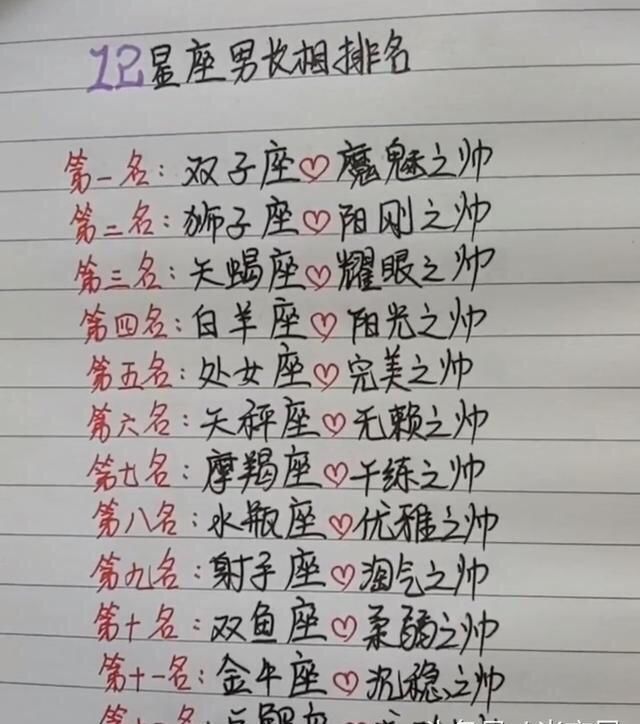 12星座男长相排名
第一名：双子座♡魔魅之帅
第二名：狮子座♡阳刚之帅
第三名：天蝎座♡耀眼之帅
第四名：白羊座♡阳光之帅
第五名：处女座♡完美之帅
第六名：天秤座♡无赖之帅
第七名：摩羯座♡干练之帅
第八名：水瓶座♡优雅之帅
第九名：射手座♡淘气之帅
第十名：双鱼座♡柔之帅
第十一名：金牛座♡沉稳之帅